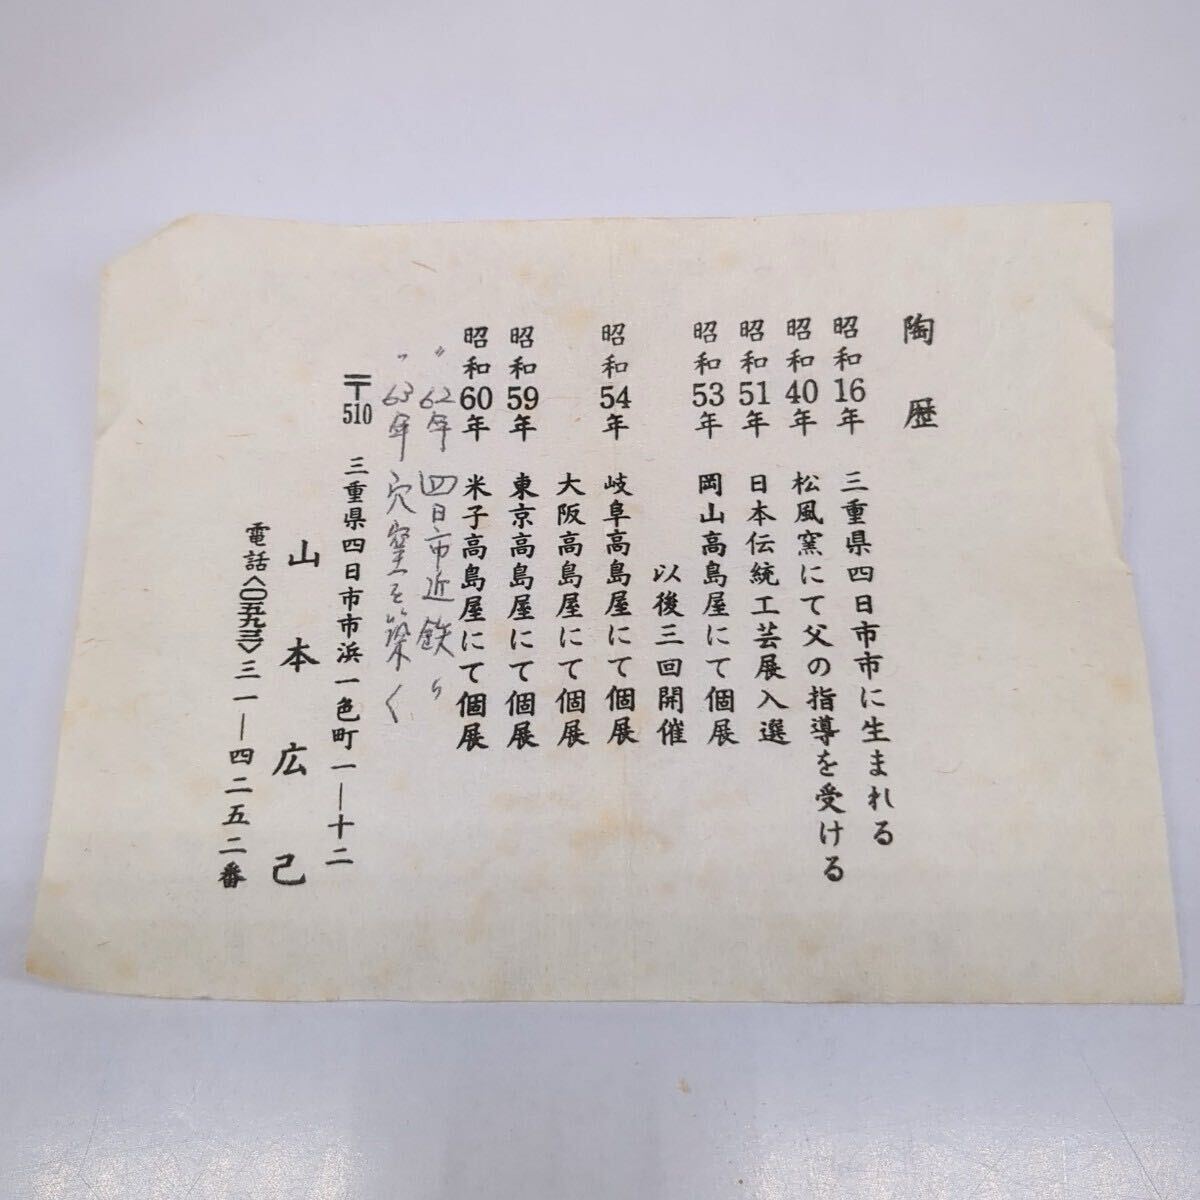 陶歴
昭和16年 三重県四日市市に生まれる
昭和40年 松風窯にて父の指導を受ける
昭和51年 日本伝統工芸展入選
昭和53年 岡山高島屋にて個展
以後三回開催
昭和54年 岐阜高島屋にて個展
大阪高島屋にて個展
昭和59年 東京高島屋にて個展
昭和60年 米子高島屋にて個展
〃 62年 四日市近鉄 〃
〃 63年 穴窯を築く
〒510 三重県四日市市浜一色町一—十二
山本広己
電話〈〇五九三〉三一—四二五二番